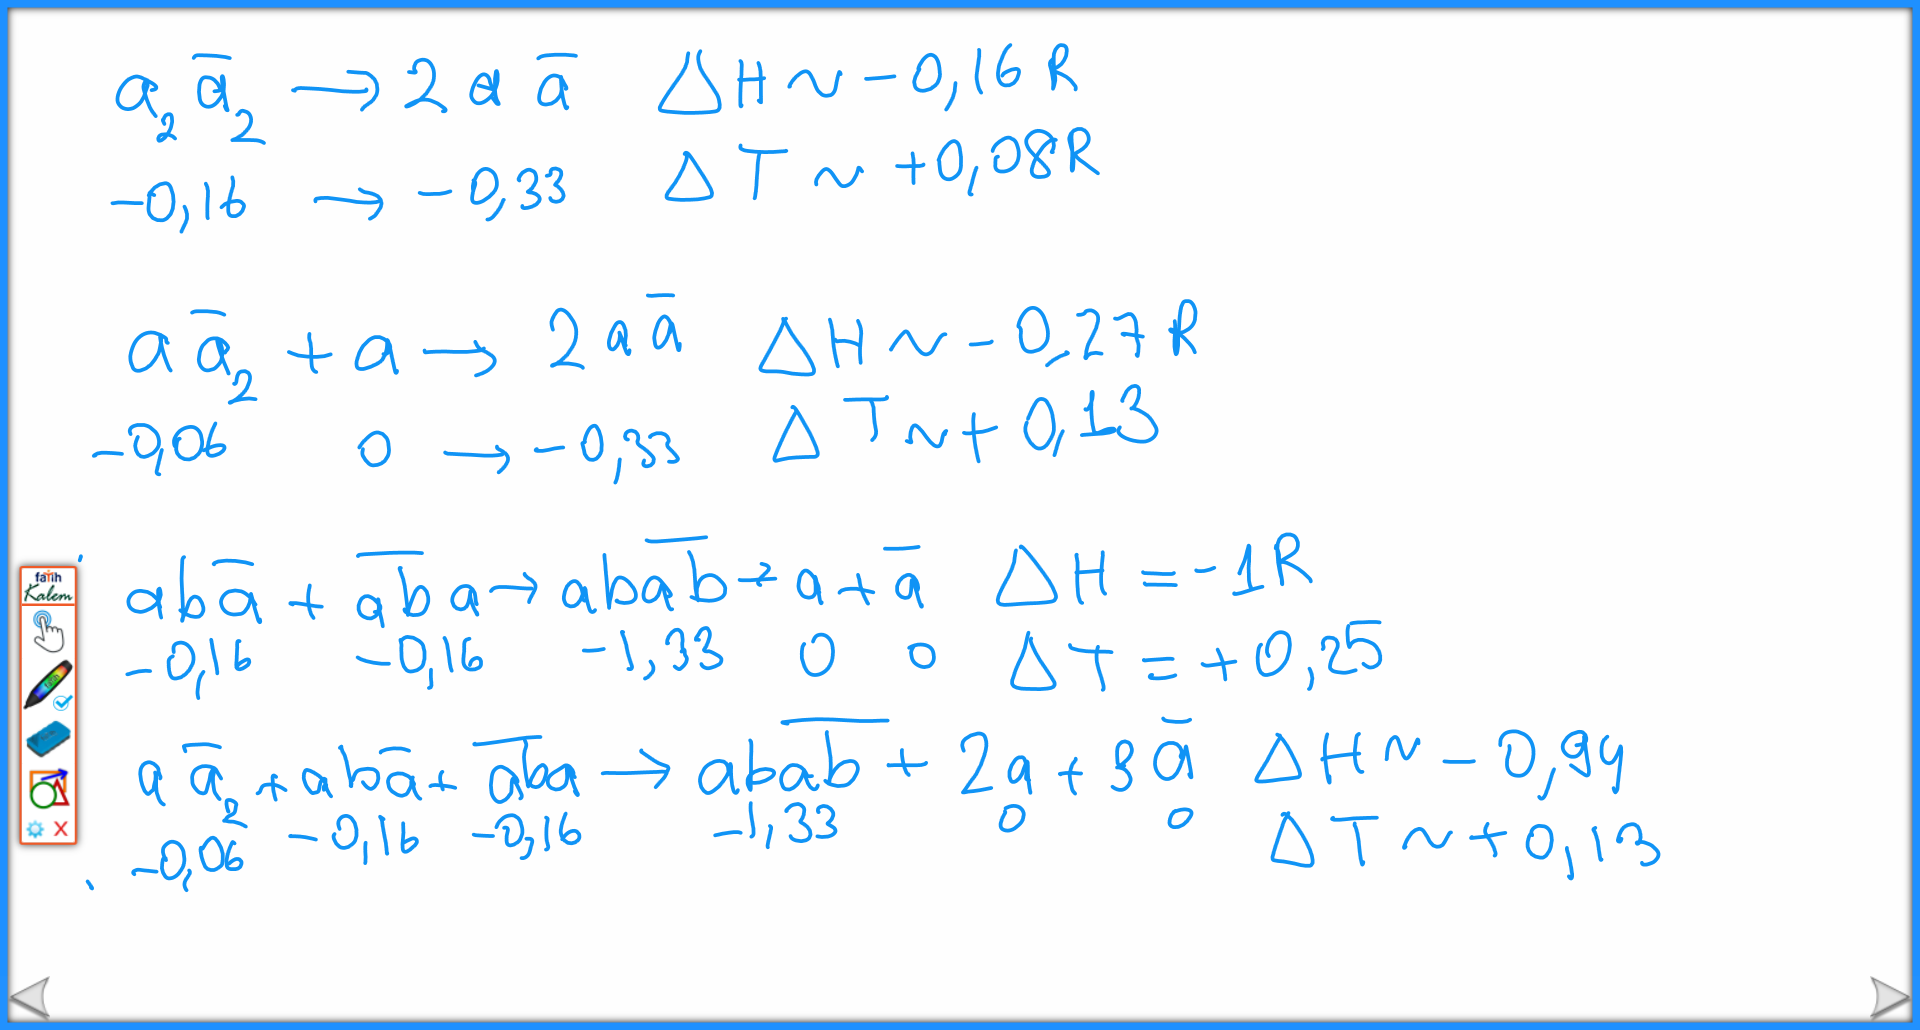 a₂ a̅₂ → 2 a a̅   ΔH ~ -0,16 R
-0,16 → -0,33   ΔT ~ +0,08R
a a̅₂ + a → 2 a a̅   ΔH ~ -0,27 R
-0,06   0 → -0,33   ΔT ~ + 0,13
aba̅ + a̅b̅a → aba̅b̅ + a + a̅   ΔH = -1R
-0,16   -0,16   -1,33   0   0   ΔT = +0,25
a a̅₂ + aba̅ + a̅b̅a → aba̅b̅ + 2a + 3a̅   ΔH ~ -0,94
-0,06   -0,16   -0,16   -1,33   0   0   ΔT ~ +0,13
fatih
Kalem